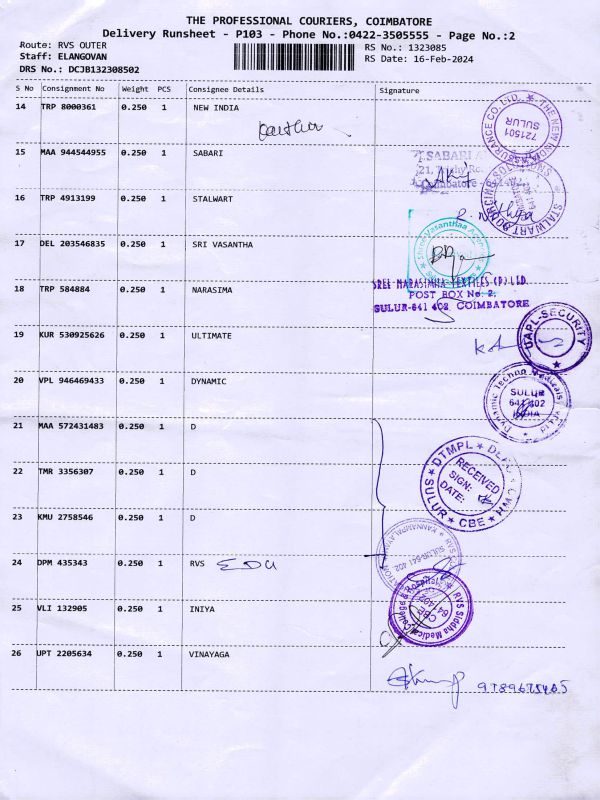 THE PROFESSIONAL COURIERS, COIMBATORE
Delivery Runsheet - P103 - Phone No.:0422-3505555 - Page No.:2
Route: RVS OUTER
RS No.: 1323085
Staff: ELANGOVAN
RS Date: 16-Feb-2024
DRS No.: DCJB132308502
S No Consignment No Weight PCS Consignee Details Signature
14 TRP 8000361 0.250 1 NEW INDIA
THE NEW INDIA ASSURANCE CO. LTD.
721501
SULUR
15 MAA 944544955 0.250 1 SABARI
T.SABARI
16 TRP 4913199 0.250 1 STALWART
STALWART SOURCING SOLUTIONS
17 DEL 203546835 0.250 1 SRI VASANTHA
18 TRP 584884 0.250 1 NARASIMA
SREE NARASIMHA TEXTILES (P) LTD.
POST BOX No. 2,
SULUR-641 402 COIMBATORE
19 KUR 530925626 0.250 1 ULTIMATE
UAPL-SECURITY
20 VPL 946469433 0.250 1 DYNAMIC
Dynamic Techno Medicals
SULUR
641 402
INDIA
21 MAA 572431483 0.250 1 D
22 TMR 3356307 0.250 1 D
DTMPL
RECEIVED
SIGN:
DATE:
SULUR CBE
23 KMU 2758546 0.250 1 D
24 DPM 435343 0.250 1 RVS EDU
SULUR-641 402
25 VLI 132905 0.250 1 INIYA
RVS Siddha Medical College & Hospital
26 UPT 2205634 0.250 1 VINAYAGA